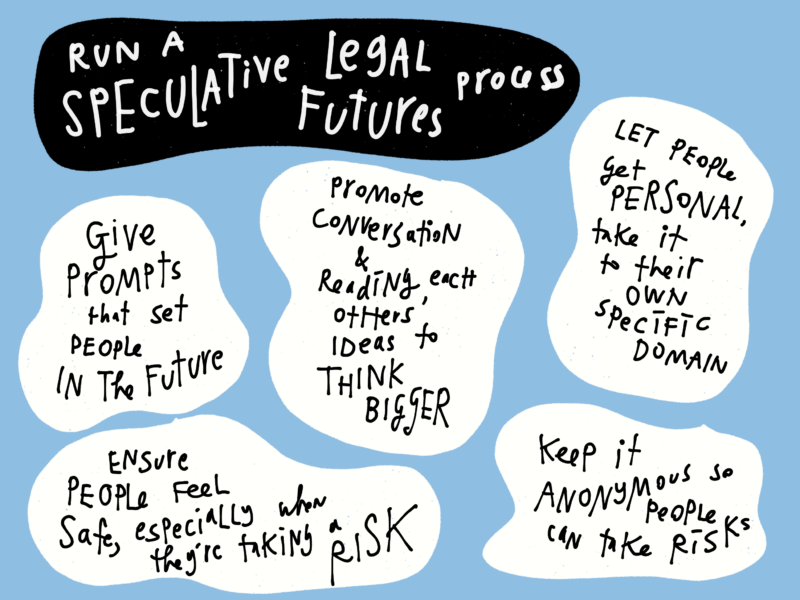 RUN A
SPECULATIVE LEGAL
FUTURES PROCESS
GIVE
PROMPTS
that set
PEOPLE
IN THE FUTURE
PROMOTE
CONVERSATION
&
READING, EACH
OTHERS
IDEAS to
THINK
BIGGER
LET PEOPLE
get
PERSONAL,
take it
to their
OWN
SPECIFIC
DOMAIN
ENSURE
PEOPLE FEEL
Safe, especially when
they're taking a
RISK
Keep it
ANONYMOUS so
PEOPLE
can take RISKS